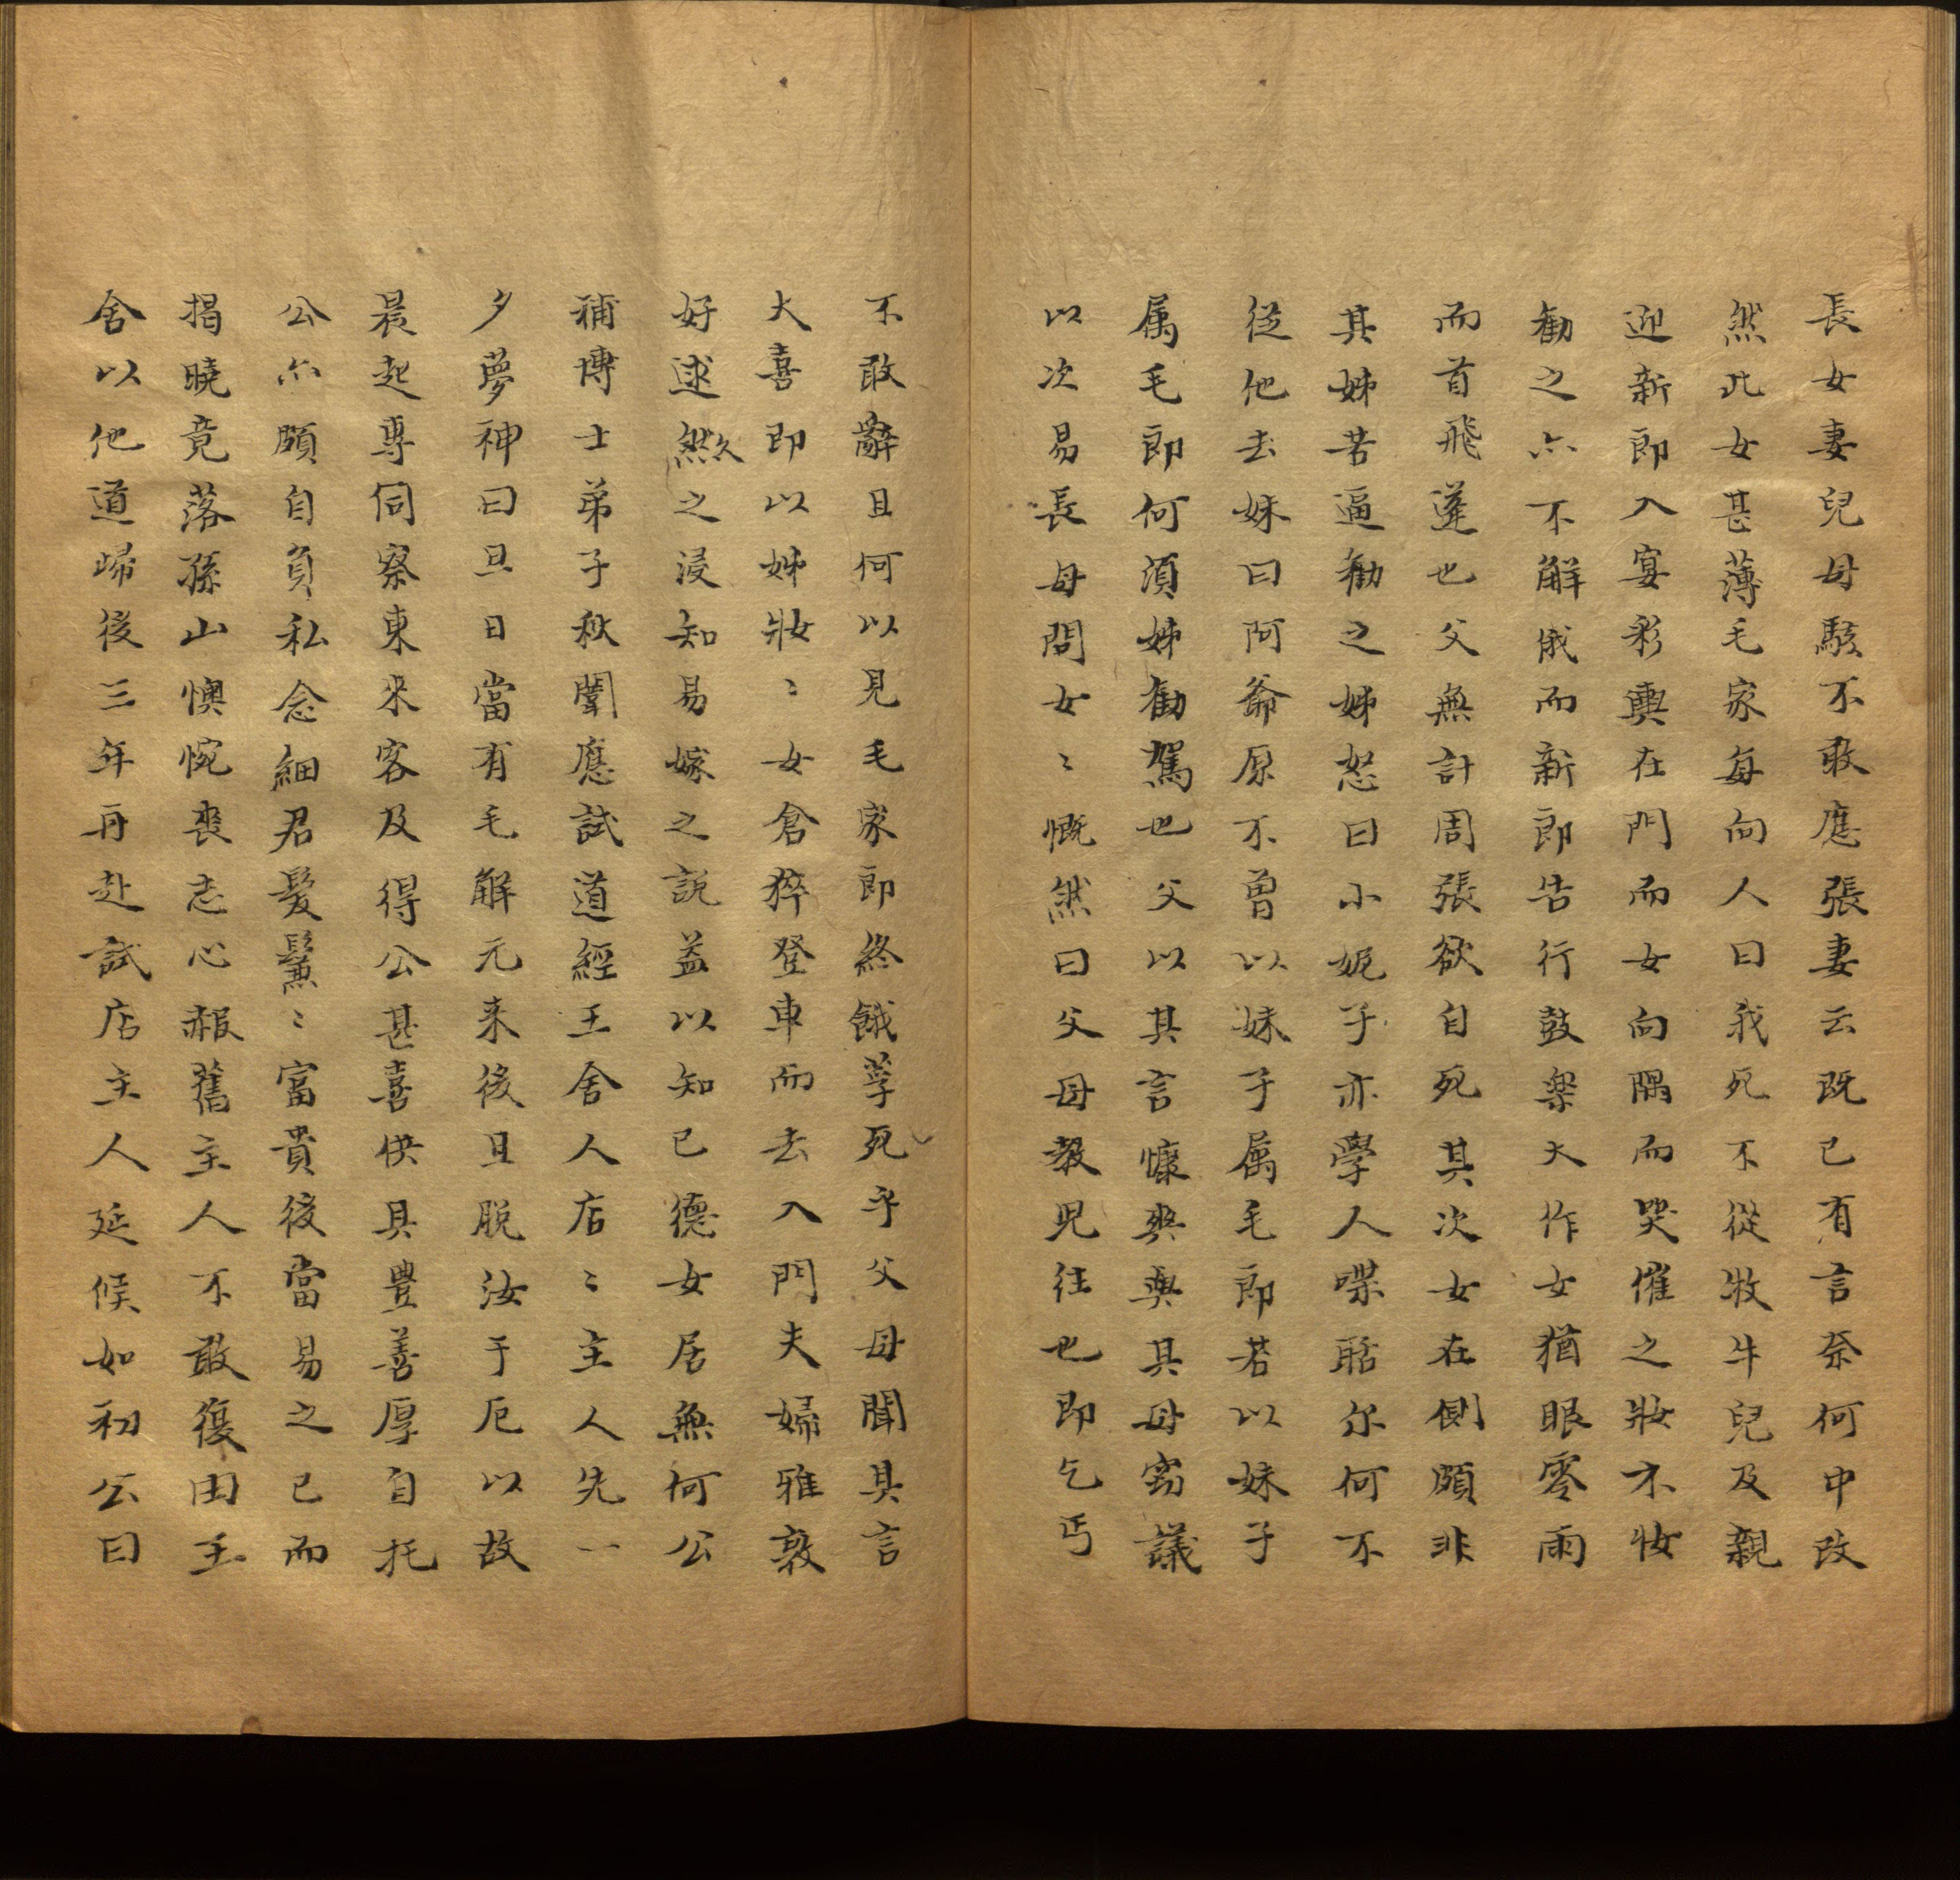 長女妻兒母駭不敢應張妻云既已有言奈何中改
然此女甚薄毛家每向人曰我死不從牧牛兒及親
迎新郎入宴彩輿在門而女向隅而哭催之妝不妝
勸之亦不解俄而新郎告行鼓樂大作女猶眼零雨
而首飛蓬也父無計周張欲自死其次女在側頗非
其姊苦逼勸之姊怒曰小妮子亦學人喋聒尔何不
從他去妹曰阿爺原不曾以妹子属毛郎若以妹子
属毛郎何須姊勸駕也父以其言慷爽與其母竊議
以次易長母問女〻慨然曰父母教児往也即乞丐
不敢辭且何以見毛家郎終餓莩死乎父母聞其言
大喜即以姊妝〻女倉猝登車而去入門夫婦雅敦
好逑然久之浸知易嫁之說益以知己德女居無何公
補博士弟子秋闈應試道經王舍人店〻主人先一
夕夢神曰旦日當有毛解元来後且脱汝于厄以故
晨起專伺察東來客及得公甚喜供具豊善厚自托
公亦頗自負私念細君髮鬑〻富貴後當易之已而
揭曉竟落孫山懊惋喪志心赧舊主人不敢復由王
舍以他道歸後三年再赴試店主人延候如初公曰